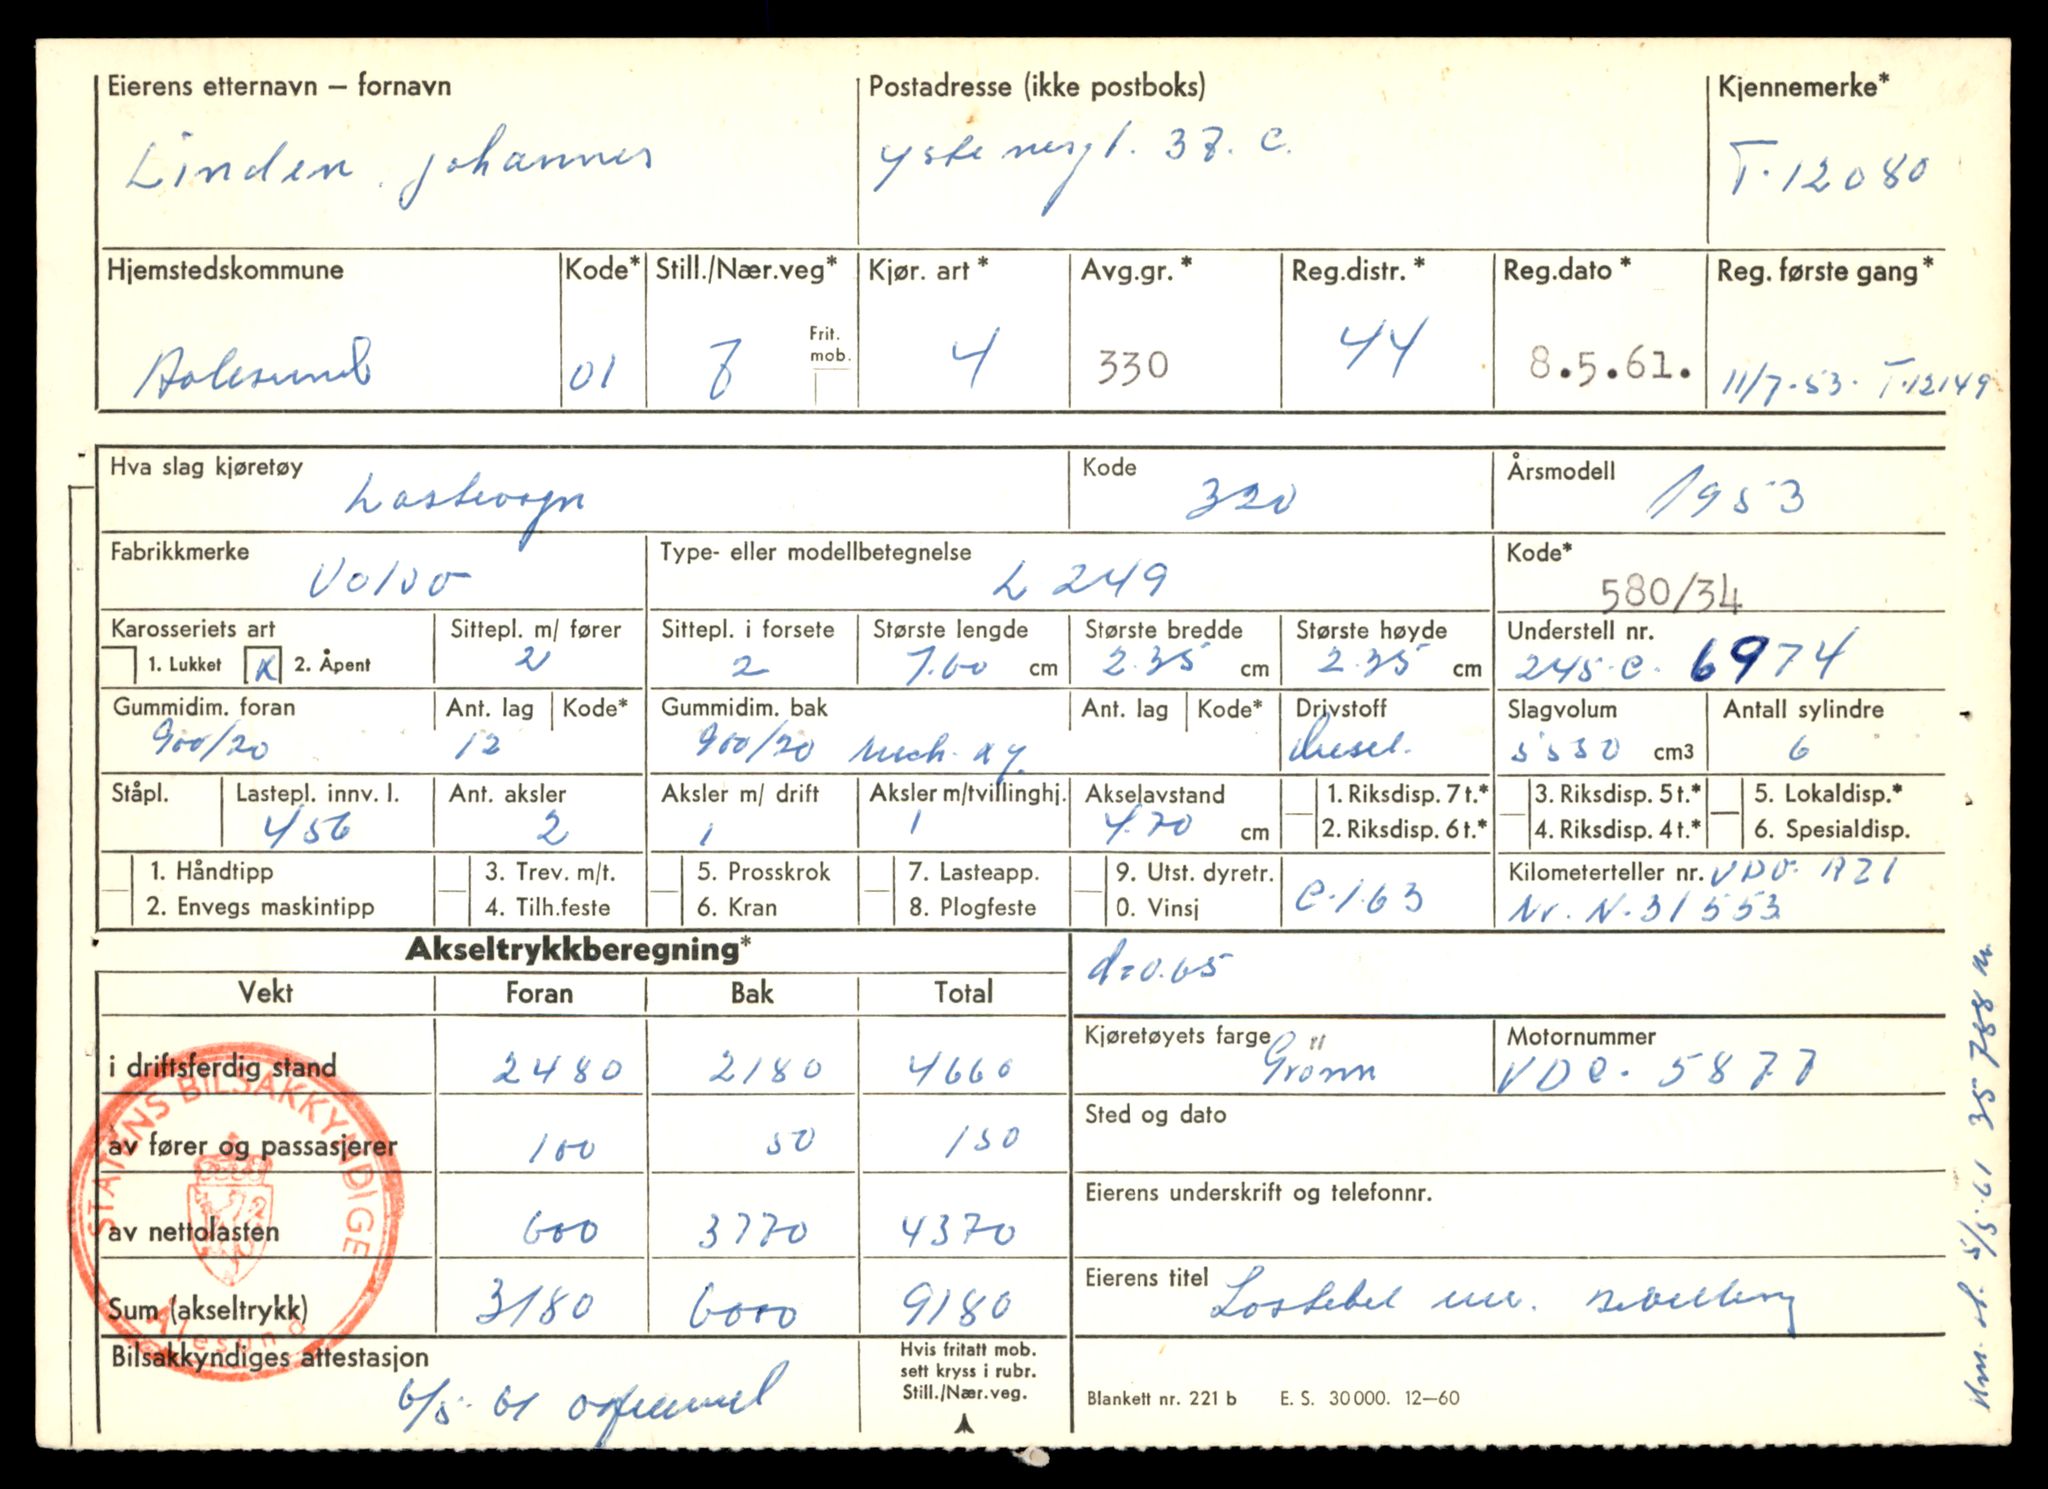 Eierens etternavn – fornavn Postadresse (ikke postboks) Kjennemerke*
Linden, Johannes 37. C. T-12080
Hjemstedskommune Kode* Still./Nær.veg* Kjør. art* Avg.gr.* Reg.distr.* Reg.dato* Reg. første gang*
Frit.
mob.
Aalesund 01 7 4 330 44 8.5.61. 11/7-53. T-12149
Hva slag kjøretøy Kode Årsmodell
Lastevogn 320 1953
Fabrikkmerke Type- eller modellbetegnelse Kode*
Volvo L 249 580/34
Karosseriets art Sittepl. m/ fører Sittepl. i forsete Største lengde Største bredde Største høyde Understell nr.
1. Lukket X 2. Åpent 2 2 7.60 cm 2.35 cm 2.35 cm 245-C. 6974
Gummidim. foran Ant. lag Kode* Gummidim. bak Ant. lag Kode* Drivstoff Slagvolum Antall sylindre
900/20 12 900/20 Diesel. 5530 cm3 6
Ståpl. Lastepl. innv. l. Ant. aksler Aksler m/ drift Aksler m/tvillinghj. Akselavstand 1. Riksdisp. 7 t.* 3. Riksdisp. 5 t.* 5. Lokaldisp.*
456 2 1 1 4.70 cm 2. Riksdisp. 6 t.* 4. Riksdisp. 4 t.* 6. Spesialdisp.
1. Håndtipp 3. Trev. m/t. 5. Prosskrok 7. Lasteapp. 9. Utst. dyretr. C-1.63 Kilometerteller nr. VDO-
2. Envegs maskintipp 4. Tilh.feste 6. Kran 8. Plogfeste 0. Vinsj Nr. N-31553
Akseltrykkberegning*
d=0.65
Vekt Foran Bak Total
i driftsferdig stand 2480 2180 4660
Kjøretøyets farge Motornummer
Grønn VDC-5877
av fører og passasjerer 100 50 150
Sted og dato
av nettolasten 600 3770 4370
Eierens underskrift og telefonnr.
Sum (akseltrykk) 3180 6000 9180
Eierens titel
STATENS BILSAKKYNDIGE
Ålesund
Bilsakkyndiges attestasjon
6/5-61
Hvis fritatt mob.
sett kryss i rubr.
Still./Nær.veg.
Blankett nr. 221 b E. S. 30 000. 12–60
5/5-61 35788